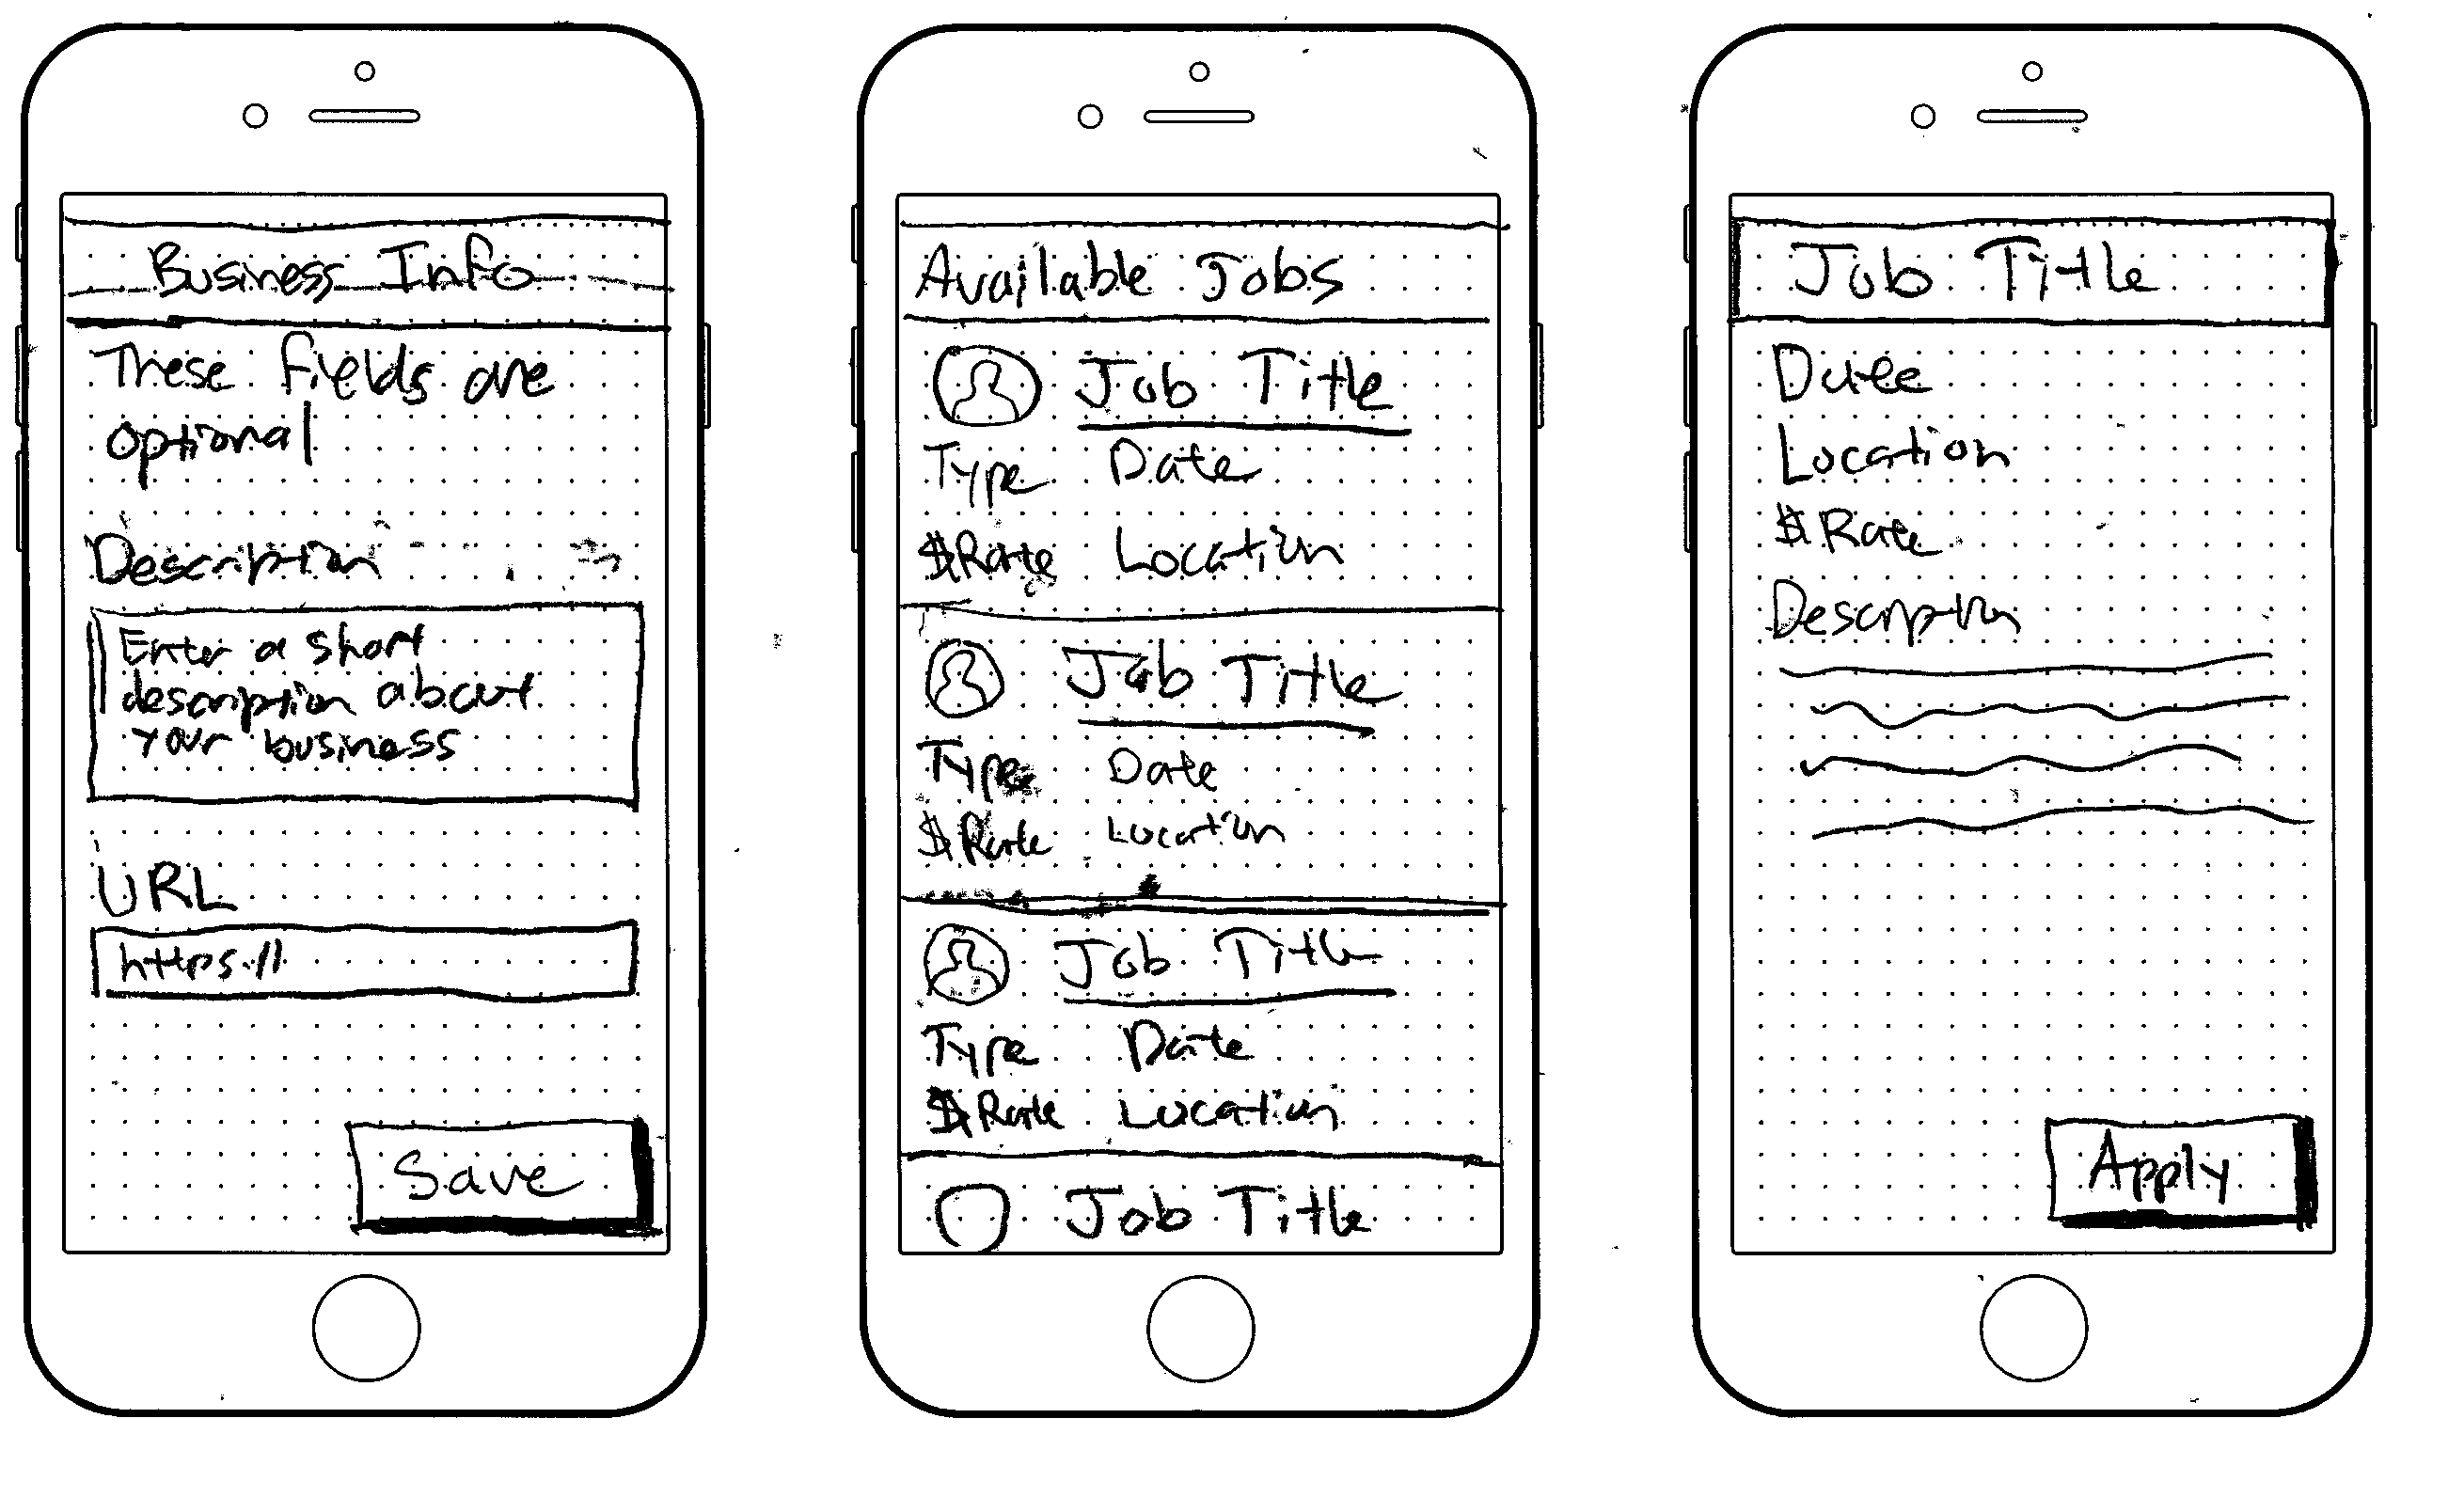 Business Info
These fields are
optional
Description
Enter a short
description about
your business
URL
https://
Save
Available Jobs
Job Title
Type Date
$Rate Location
Job Title
Type Date
$Rate Location
Job Title
Type Date
$Rate Location
Job Title
Job Title
Date
Location
$Rate
Description
Apply